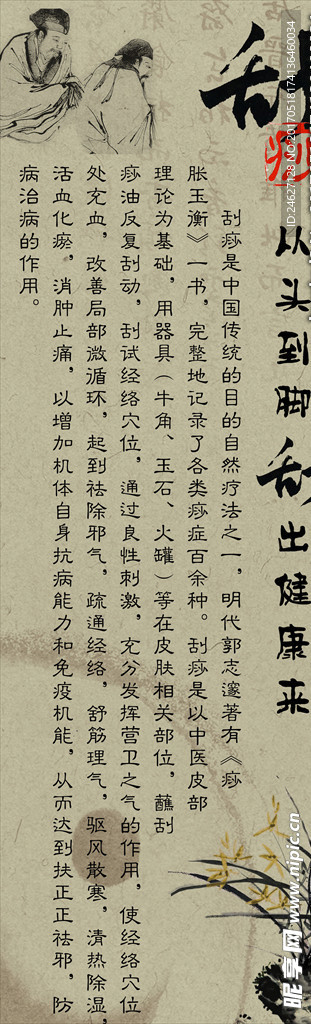 刮
痧
从头到脚刮出健康来
刮痧是中国传统的目的自然疗法之一，明代郭志邃著有《痧
胀玉衡》一书，完整地记录了各类痧症百余种。刮痧是以中医皮部
理论为基础，用器具（牛角、玉石、火罐）等在皮肤相关部位，蘸刮
痧油反复刮动，刮试经络穴位，通过良性刺激，充分发挥营卫之气的作用，使经络穴位
处充血，改善局部微循环，起到祛除邪气，疏通经络，舒筋理气，驱风散寒，清热除湿，
活血化瘀，消肿止痛，以增加机体自身抗病能力和免疫机能，从而达到扶正正祛邪，防
病治病的作用。
ID:24627128 NO:20170518174136460034
昵享网 www.nipic.cn